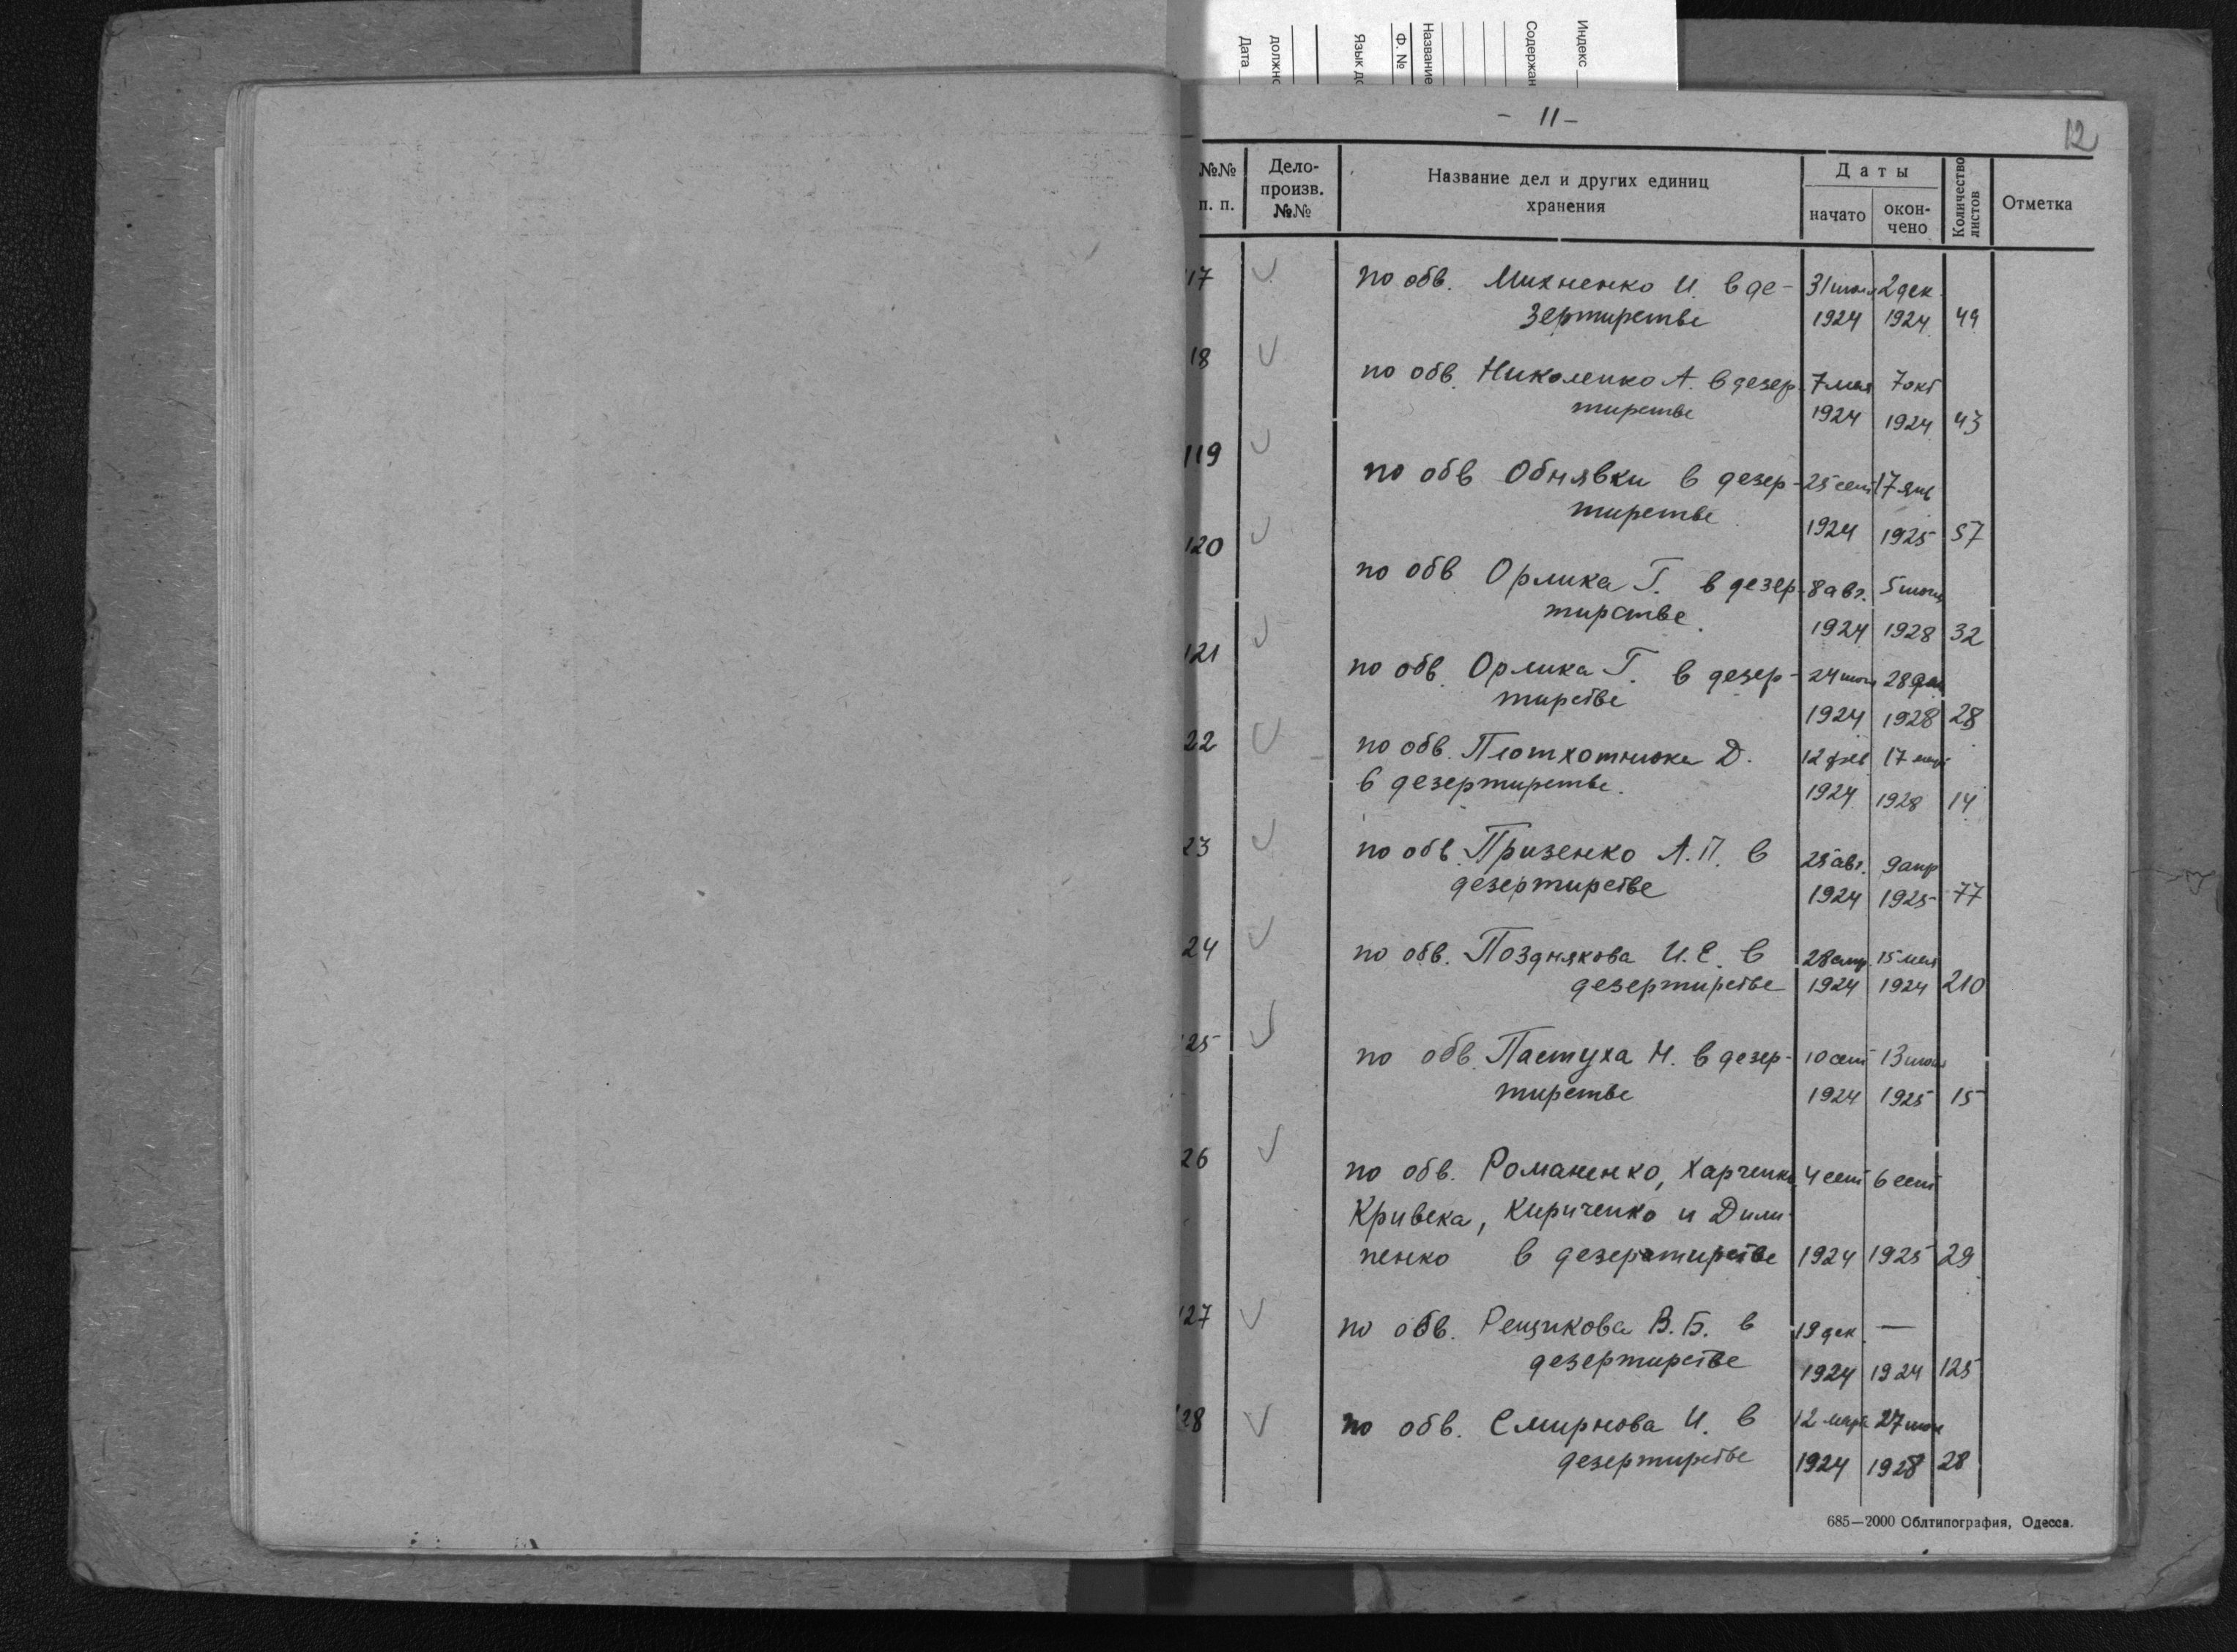 Индекс
Содержан
Название
Ф. №
Язык до
должно
Дата
- 11 -
12
№№ п. п.
Дело-произв. №№
Название дел и других единиц хранения
Даты
начато
окон-чено
Количество листов
Отметка
17 по обв. Михненко И. в де- 2 дек
зертирстве 1924 1924 49
18 по обв. Николенко А. в дезер- 7 мая 7 окт
тирстве 1924 1924 43
119 по обв Обнявки в дезер- 25 сент 17 янв
тирстве 1924 1925 57
120 по обв Орлика Г. в дезер- 8 авг.
тирстве 1924 1928 32
121 по обв. Орлика Г. в дезер- 24 28
тирстве 1924 1928 28
22 по обв. Д. 12 фев 17
в дезертирстве. 1924 1928 14
23 по обв. Призенко А. П. в 25 авг. 9 апр
дезертирстве 1924 1925 77
24 по обв. Позднякова И. Е. в 28 апр. 15 мая
дезертирстве 1924 1924 210
125 по обв. Пастуха Н. в дезер- 10 сент 13
тирстве 1924 1925 15
26 по обв. Романенко, Харченко, 4 сент 6 сент
Кривека, Кириченко и Дили-
пенко в дезертирстве 1924 1925 29
127 по обв. Рещикова В. Б. в 19 дек. —
дезертирстве 1924 1924 125
128 по обв. Смирнова И. в 12 марта 27
дезертирстве 1924 1928 28
685—2000 Облтипография, Одесса.